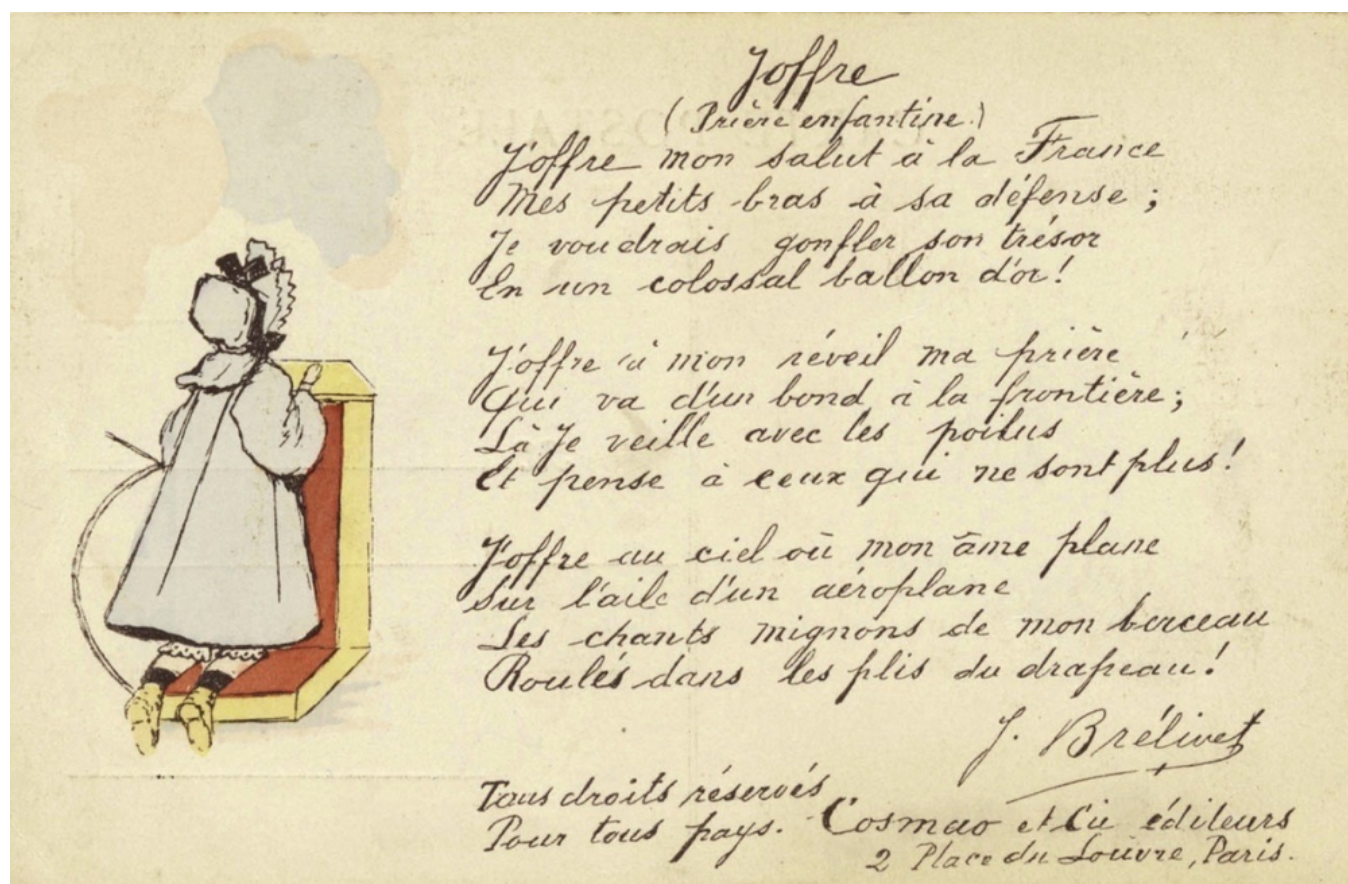 Joffre
(Prière enfantine)
J'offre mon salut à la France
Mes petits bras à sa défense ;
Je voudrais gonfler son trésor
En un colossal ballon d'or !
J'offre à mon réveil ma prière
Qui va d'un bond à la frontière ;
Là Je veille avec les poilus
Et pense à ceux qui ne sont plus !
J'offre au ciel où mon âme plane
Sur l'aile d'un aéroplane
Les chants mignons de mon berceau
Roulés dans les plis du drapeau !
J. Brélivet
Tous droits réservés
Pour tous pays.
Cosmao et Cie éditeurs
2 Place du Louvre, Paris.